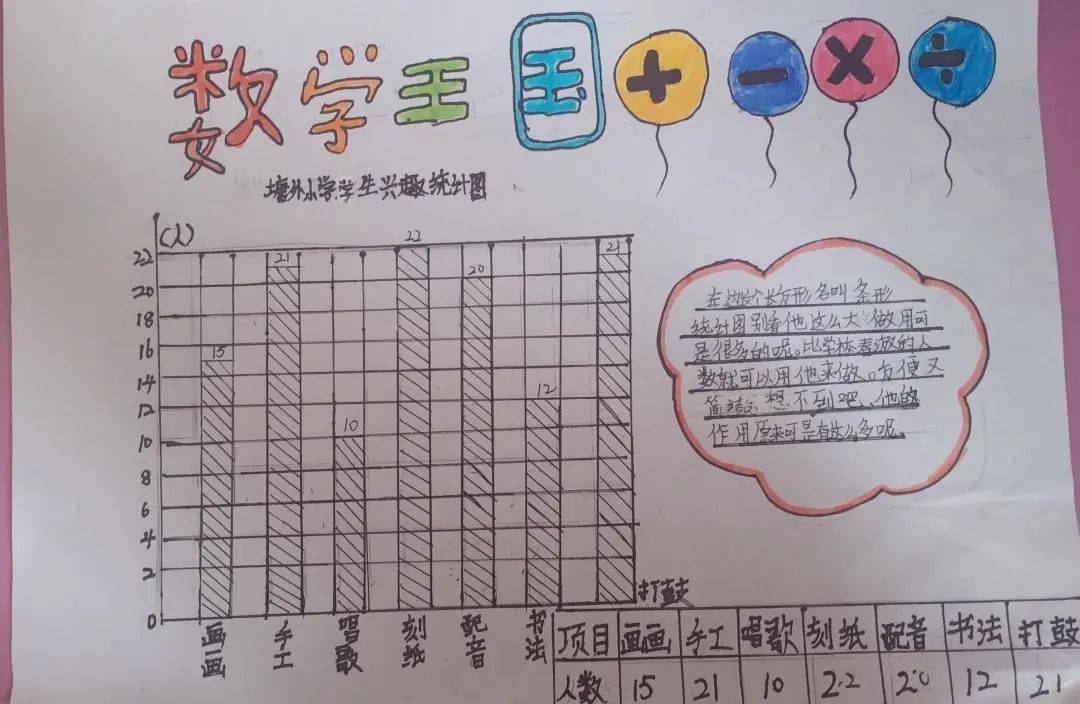 数学王国 + - × ÷
塘外小学学生兴趣统计图
(人)
22
20
18
16
14
12
10
8
6
4
2
0
15
21
10
22
20
12
21
画画
手工
唱歌
刻纸
配音
书法
打鼓
在这个长方形名叫条形
统计图别看他这么大做用可
是很多的呢。比学校春游的人
数就可以用他来做。方便又
简洁。想不到吧、他的
作用原来可是有这么多呢
项目 画画 手工 唱歌 刻纸 配音 书法 打鼓
人数 15 21 10 22 20 12 21